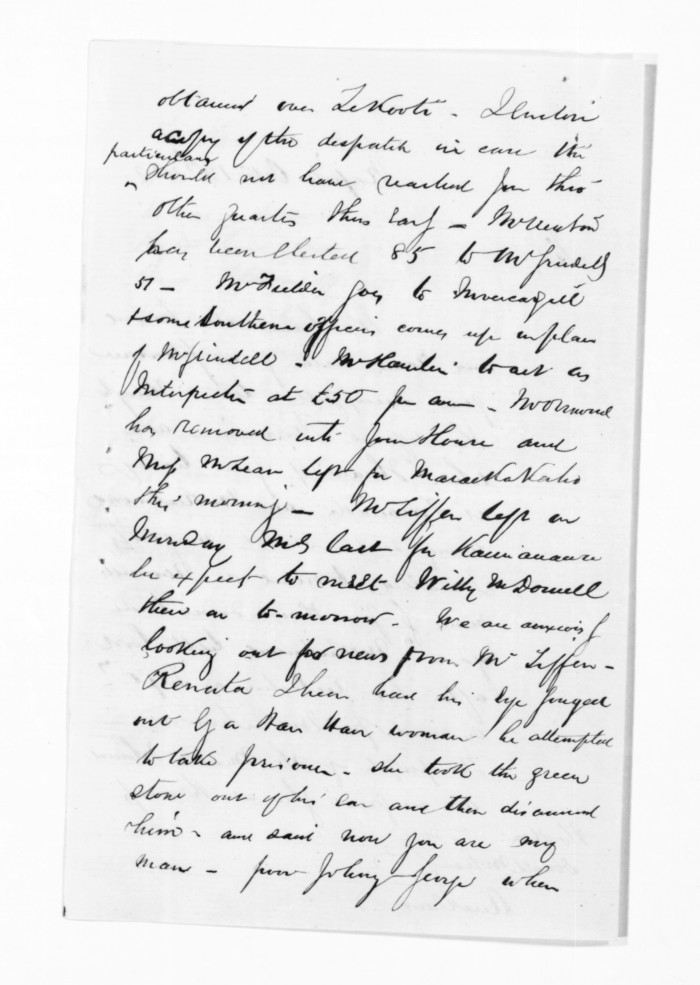 obtained over Te Kooti - I enclose
a copy of the despatch in case the
particulars
should not have reached you thro'
other quarters thus early - Mr Newton
has been elected 85 to Mr Grindell
51 - Mr Fielder goes to Invercargill
& some Southern officer comes up in place
of Mr Grindell - Mr Hamlin to act as
Interpreter at £50 per ann - Mr Ormond
has removed into your House and
Miss McLean left for Maraekakaho
this morning - Mr Tiffen left on
Monday last for
he expects to meet Willy McDonell
there on to-morrow - We are anxiously
looking out for news from Mr Tiffen -
Renata I hear had his eye gouged
out by a Hau Hau woman he attempted
to take prisoner - she took the green
stone out of his ear and then disarmed
him - and said now you are my
man - poor Johny George when